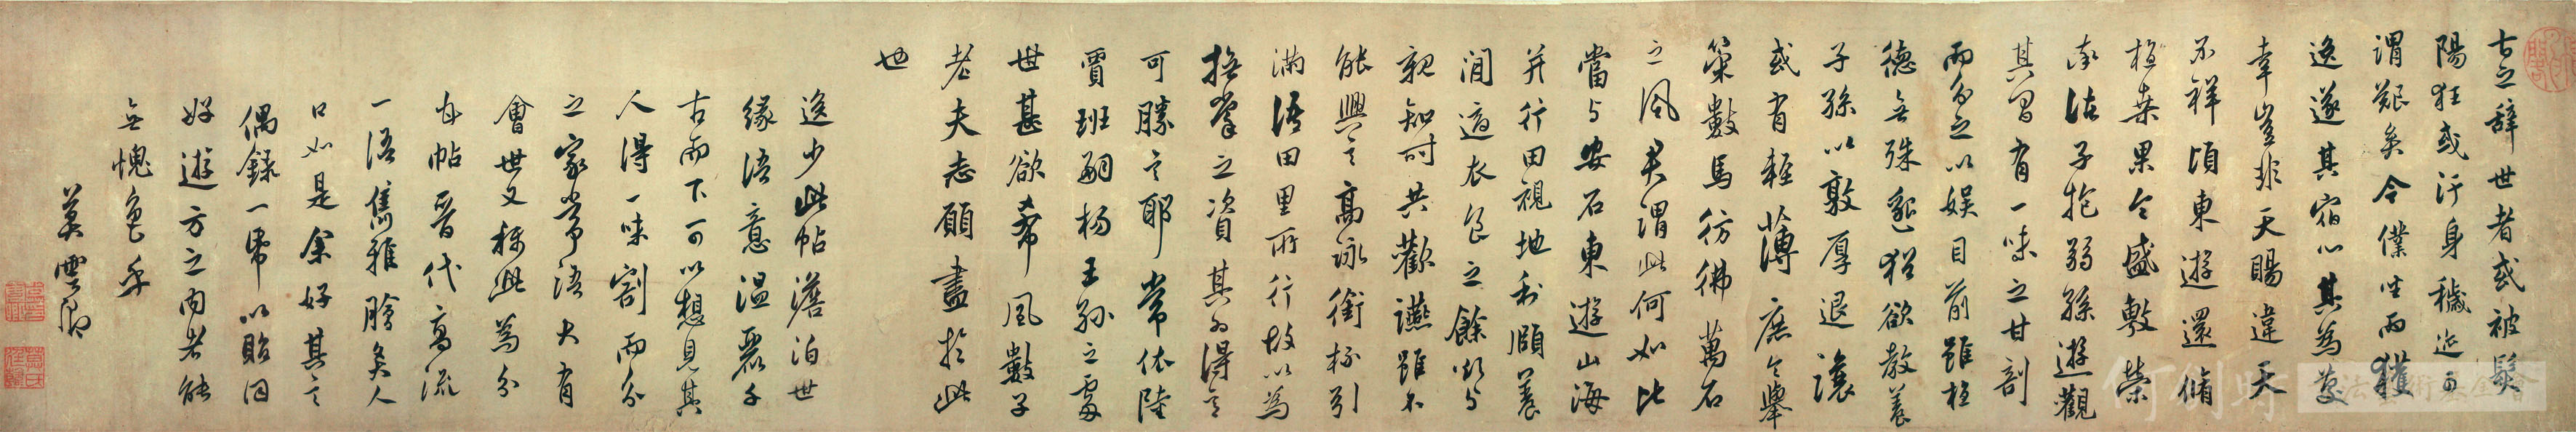 古之辭世者或被髮
陽狂或汙身穢迹可
謂艱矣今僕坐而獲
逸遂其宿心其為慶
幸豈非天賜違天
不祥頃東遊還脩
植桑果今盛敷榮
率諸子抱弱孫遊觀
其間有一味之甘割
而分之以娛目前雖植
德無殊邈猶欲教養
子孫以敦厚退讓
或有輕薄庶令舉
策數馬彷彿萬石
之風君謂此何如比
當与安石東遊山海
并行田視地利頤養
閒適衣食之餘欲与
親知時共歡讌雖不
能興言高詠銜杯引
滿語田里所行故以為
撫掌之資其為得意
可勝言耶常依陸
賈班嗣楊王孫之處
世甚欲希風數子
老夫志願盡於此
也
逸少此帖澹泊世
緣語意溫麗千
古而下可以想見其
人得一味割而分
之家常語大有
會世又稱此為分
甘帖晉代高流
一語雋雅膾炙人
口如是余好其言
偶錄一帋以貽同
好遊方之內者能
無愧色乎
莫雲卿
何創時書法藝術基金會